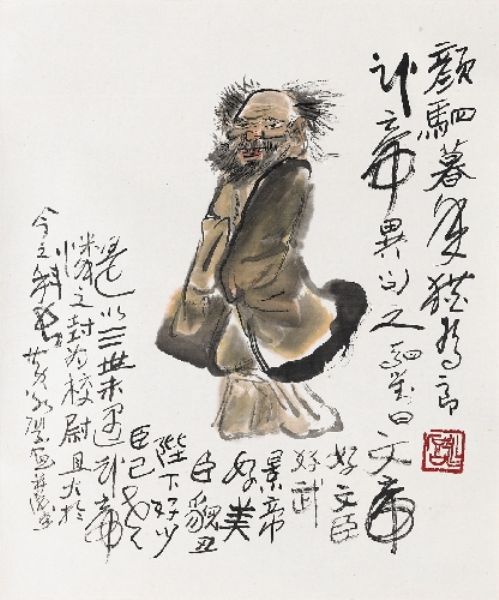 顏駟暮年猶為郎
武帝異问之駟对曰文帝
好文臣
好武
景帝
好美
臣貌丑
陛下好少
臣已老矣
是以三世未遇武帝
憐之封为校尉且大於
今之科长 黄永厚画